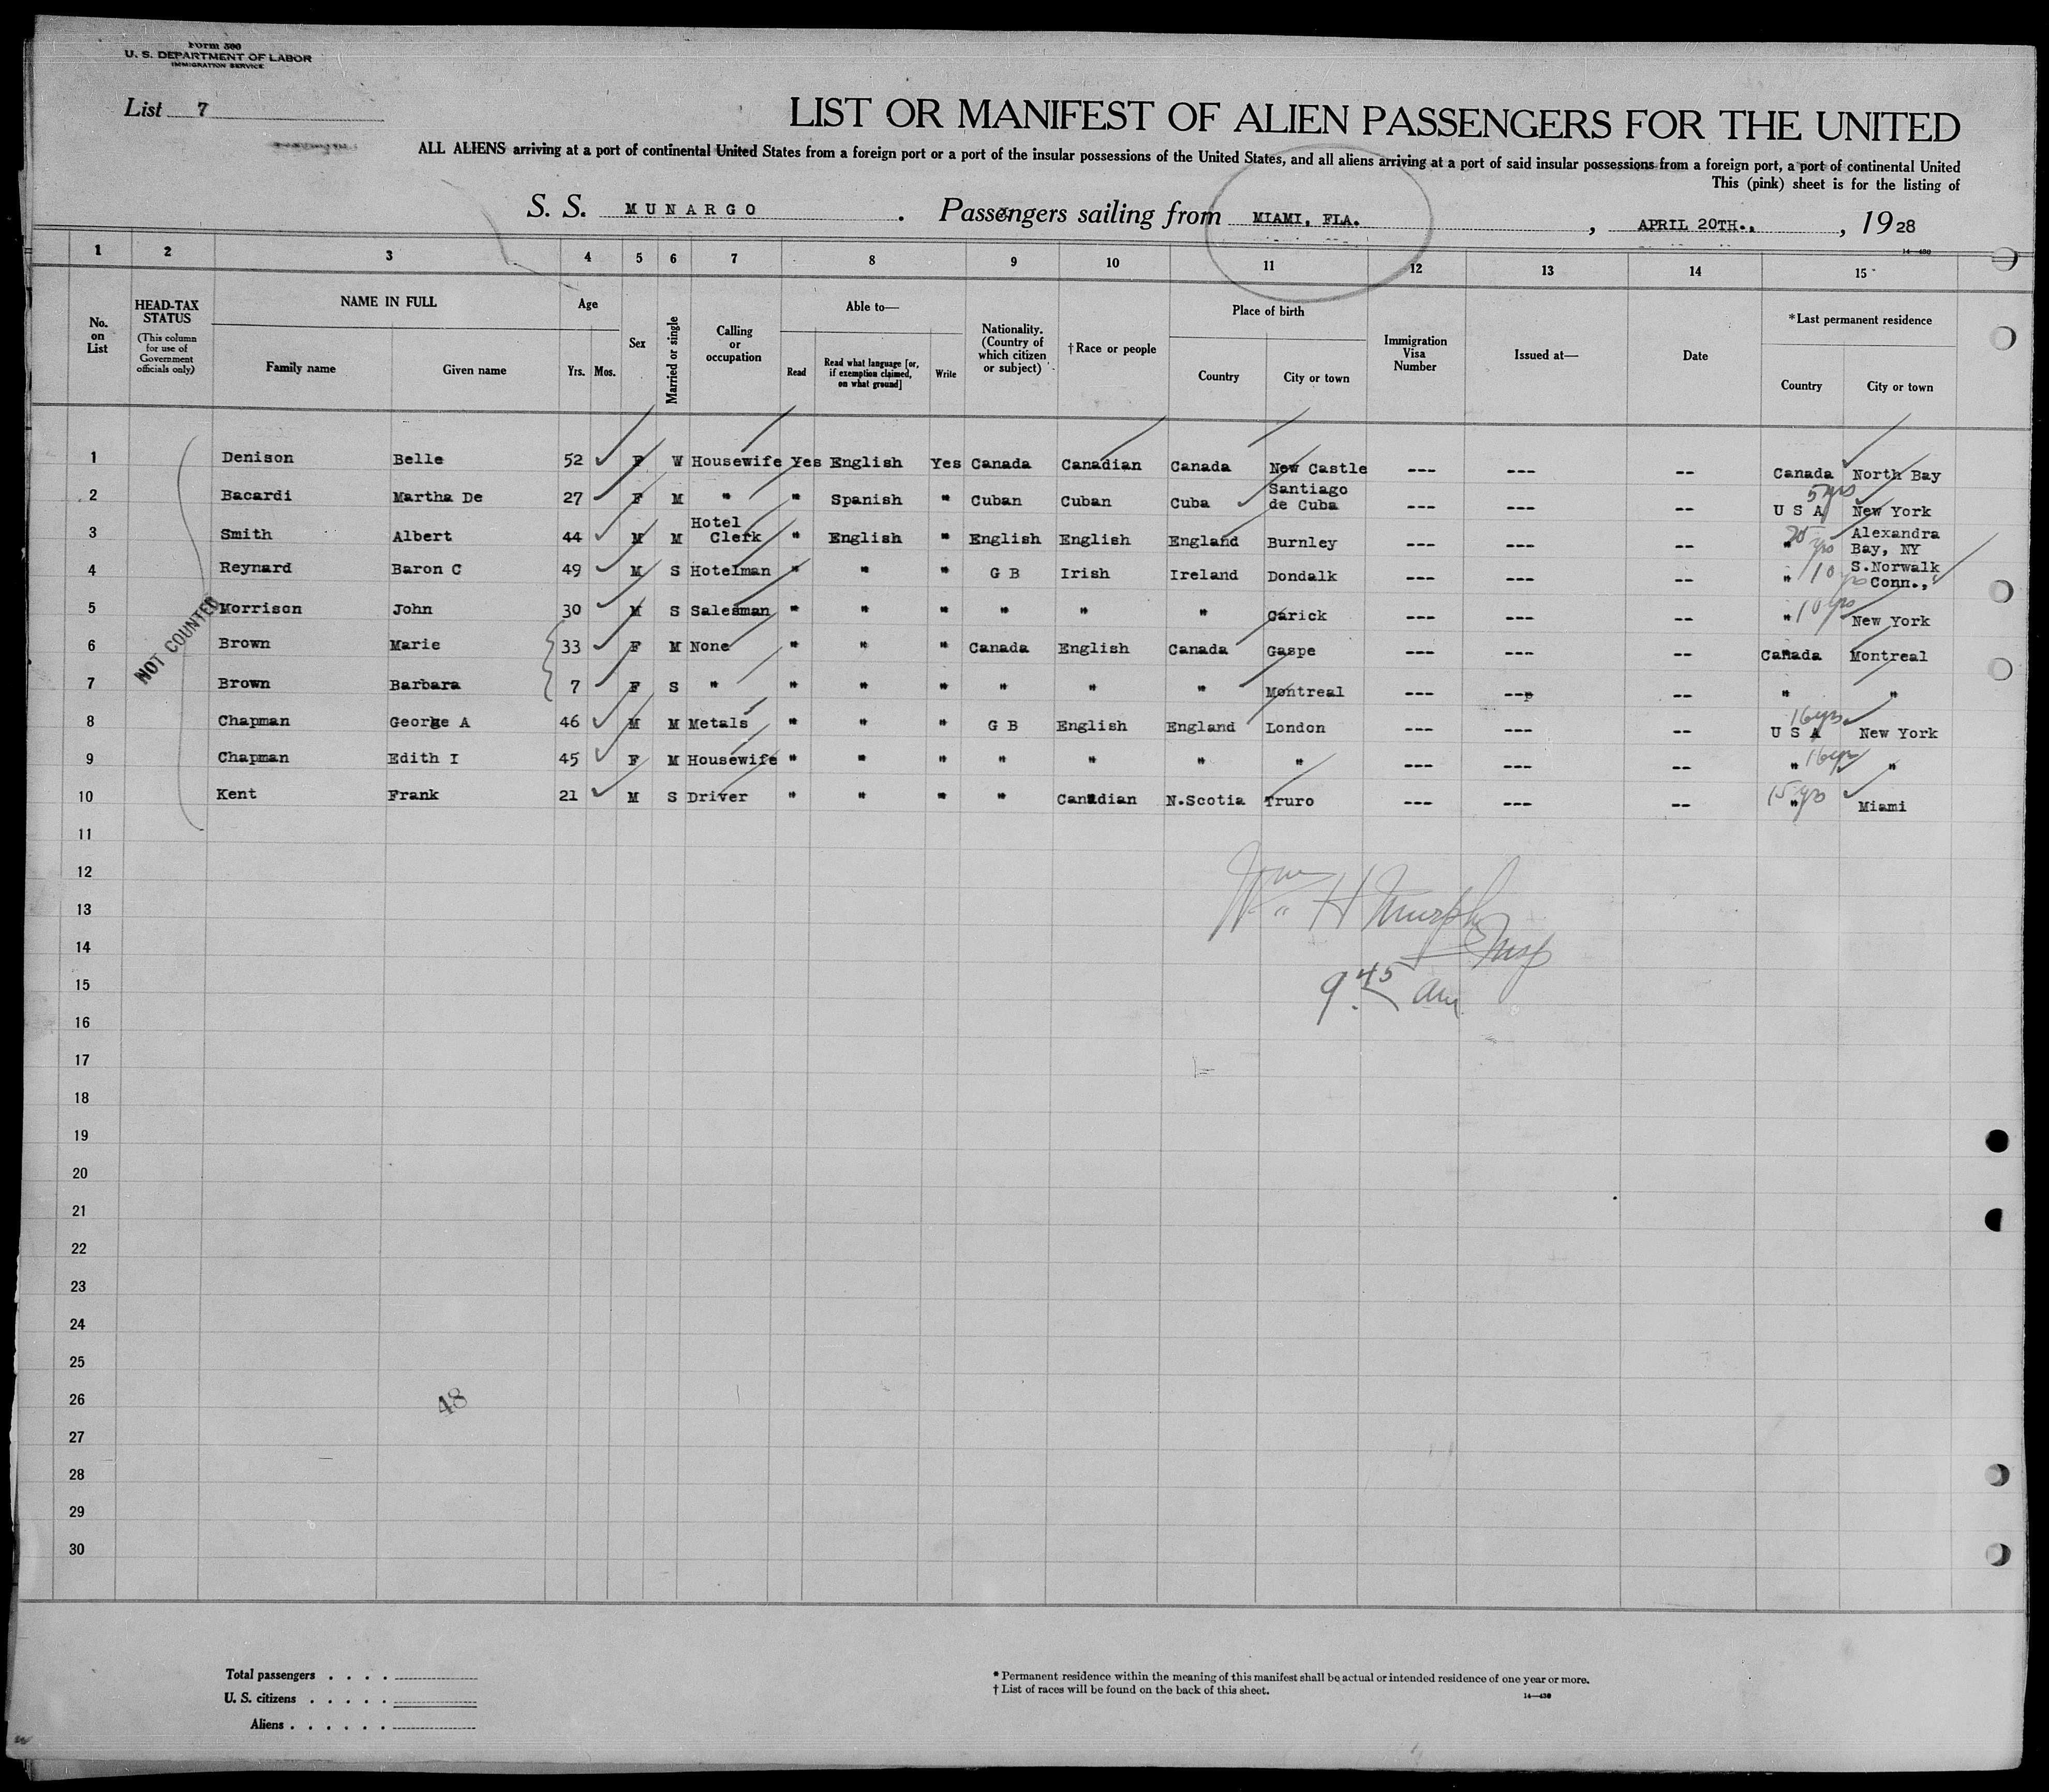 Form 500
U. S. DEPARTMENT OF LABOR
IMMIGRATION SERVICE
List 7
LIST OR MANIFEST OF ALIEN PASSENGERS FOR THE UNITED
ALL ALIENS arriving at a port of continental United States from a foreign port or a port of the insular possessions of the United States, and all aliens arriving at a port of said insular possessions from a foreign port, a port of continental United
This (pink) sheet is for the listing of
S. S. MUNARGO. Passengers sailing from MIAMI, FLA., APRIL 20TH., 1928
14—430
1 2 3 4 5 6 7 8 9 10 11 12 13 14 15
No. on List
HEAD-TAX STATUS
(This column for use of Government officials only)
NAME IN FULL
Family name Given name
Age
Yrs. Mos.
Sex
Married or single
Calling or occupation
Able to—
Read
Read what language [or, if exemption claimed, on what ground]
Write
Nationality. (Country of which citizen or subject)
†Race or people
Place of birth
Country City or town
Immigration Visa Number
Issued at—
Date
*Last permanent residence
Country City or town
1 Denison Belle 52 F W Housewife Yes English Yes Canada Canadian Canada New Castle --- --- -- Canada North Bay
2 Bacardi Martha De 27 F M " " Spanish " Cuban Cuban Cuba Santiago de Cuba --- --- -- U S A 5 yrs New York
3 Smith Albert 44 M M Hotel Clerk " English " English English England Burnley --- --- -- " 20 yrs Alexandra Bay, NY
4 Reynard Baron C 49 M S Hotelman " " " G B Irish Ireland Dondalk --- --- -- " 10 yrs S.Norwalk Conn.,
5 Morrison John 30 M S Salesman " " " " " " Carick --- --- -- " 10 yrs New York
6 Brown Marie 33 F M None " " " Canada English Canada Gaspe --- --- -- Canada Montreal
7 Brown Barbara 7 F S " " " " " " " Montreal --- --- -- " "
8 Chapman George A 46 M M Metals " " " G B English England London --- --- -- U S A 16 yrs New York
9 Chapman Edith I 45 F M Housewife " " " " " " " --- --- -- " 16 yrs "
10 Kent Frank 21 M S Driver " " " " Canadian N.Scotia Truro --- --- -- " 15 yrs Miami
NOT COUNTED
11
12
13
14
15
16
17
18
19
20
21
22
23
24
25
26
27
28
29
30
H Murphy
Insp
9.45 am
48
Total passengers . . . .
U. S. citizens . . . . .
Aliens . . . . . .
* Permanent residence within the meaning of this manifest shall be actual or intended residence of one year or more.
† List of races will be found on the back of this sheet.
14—430